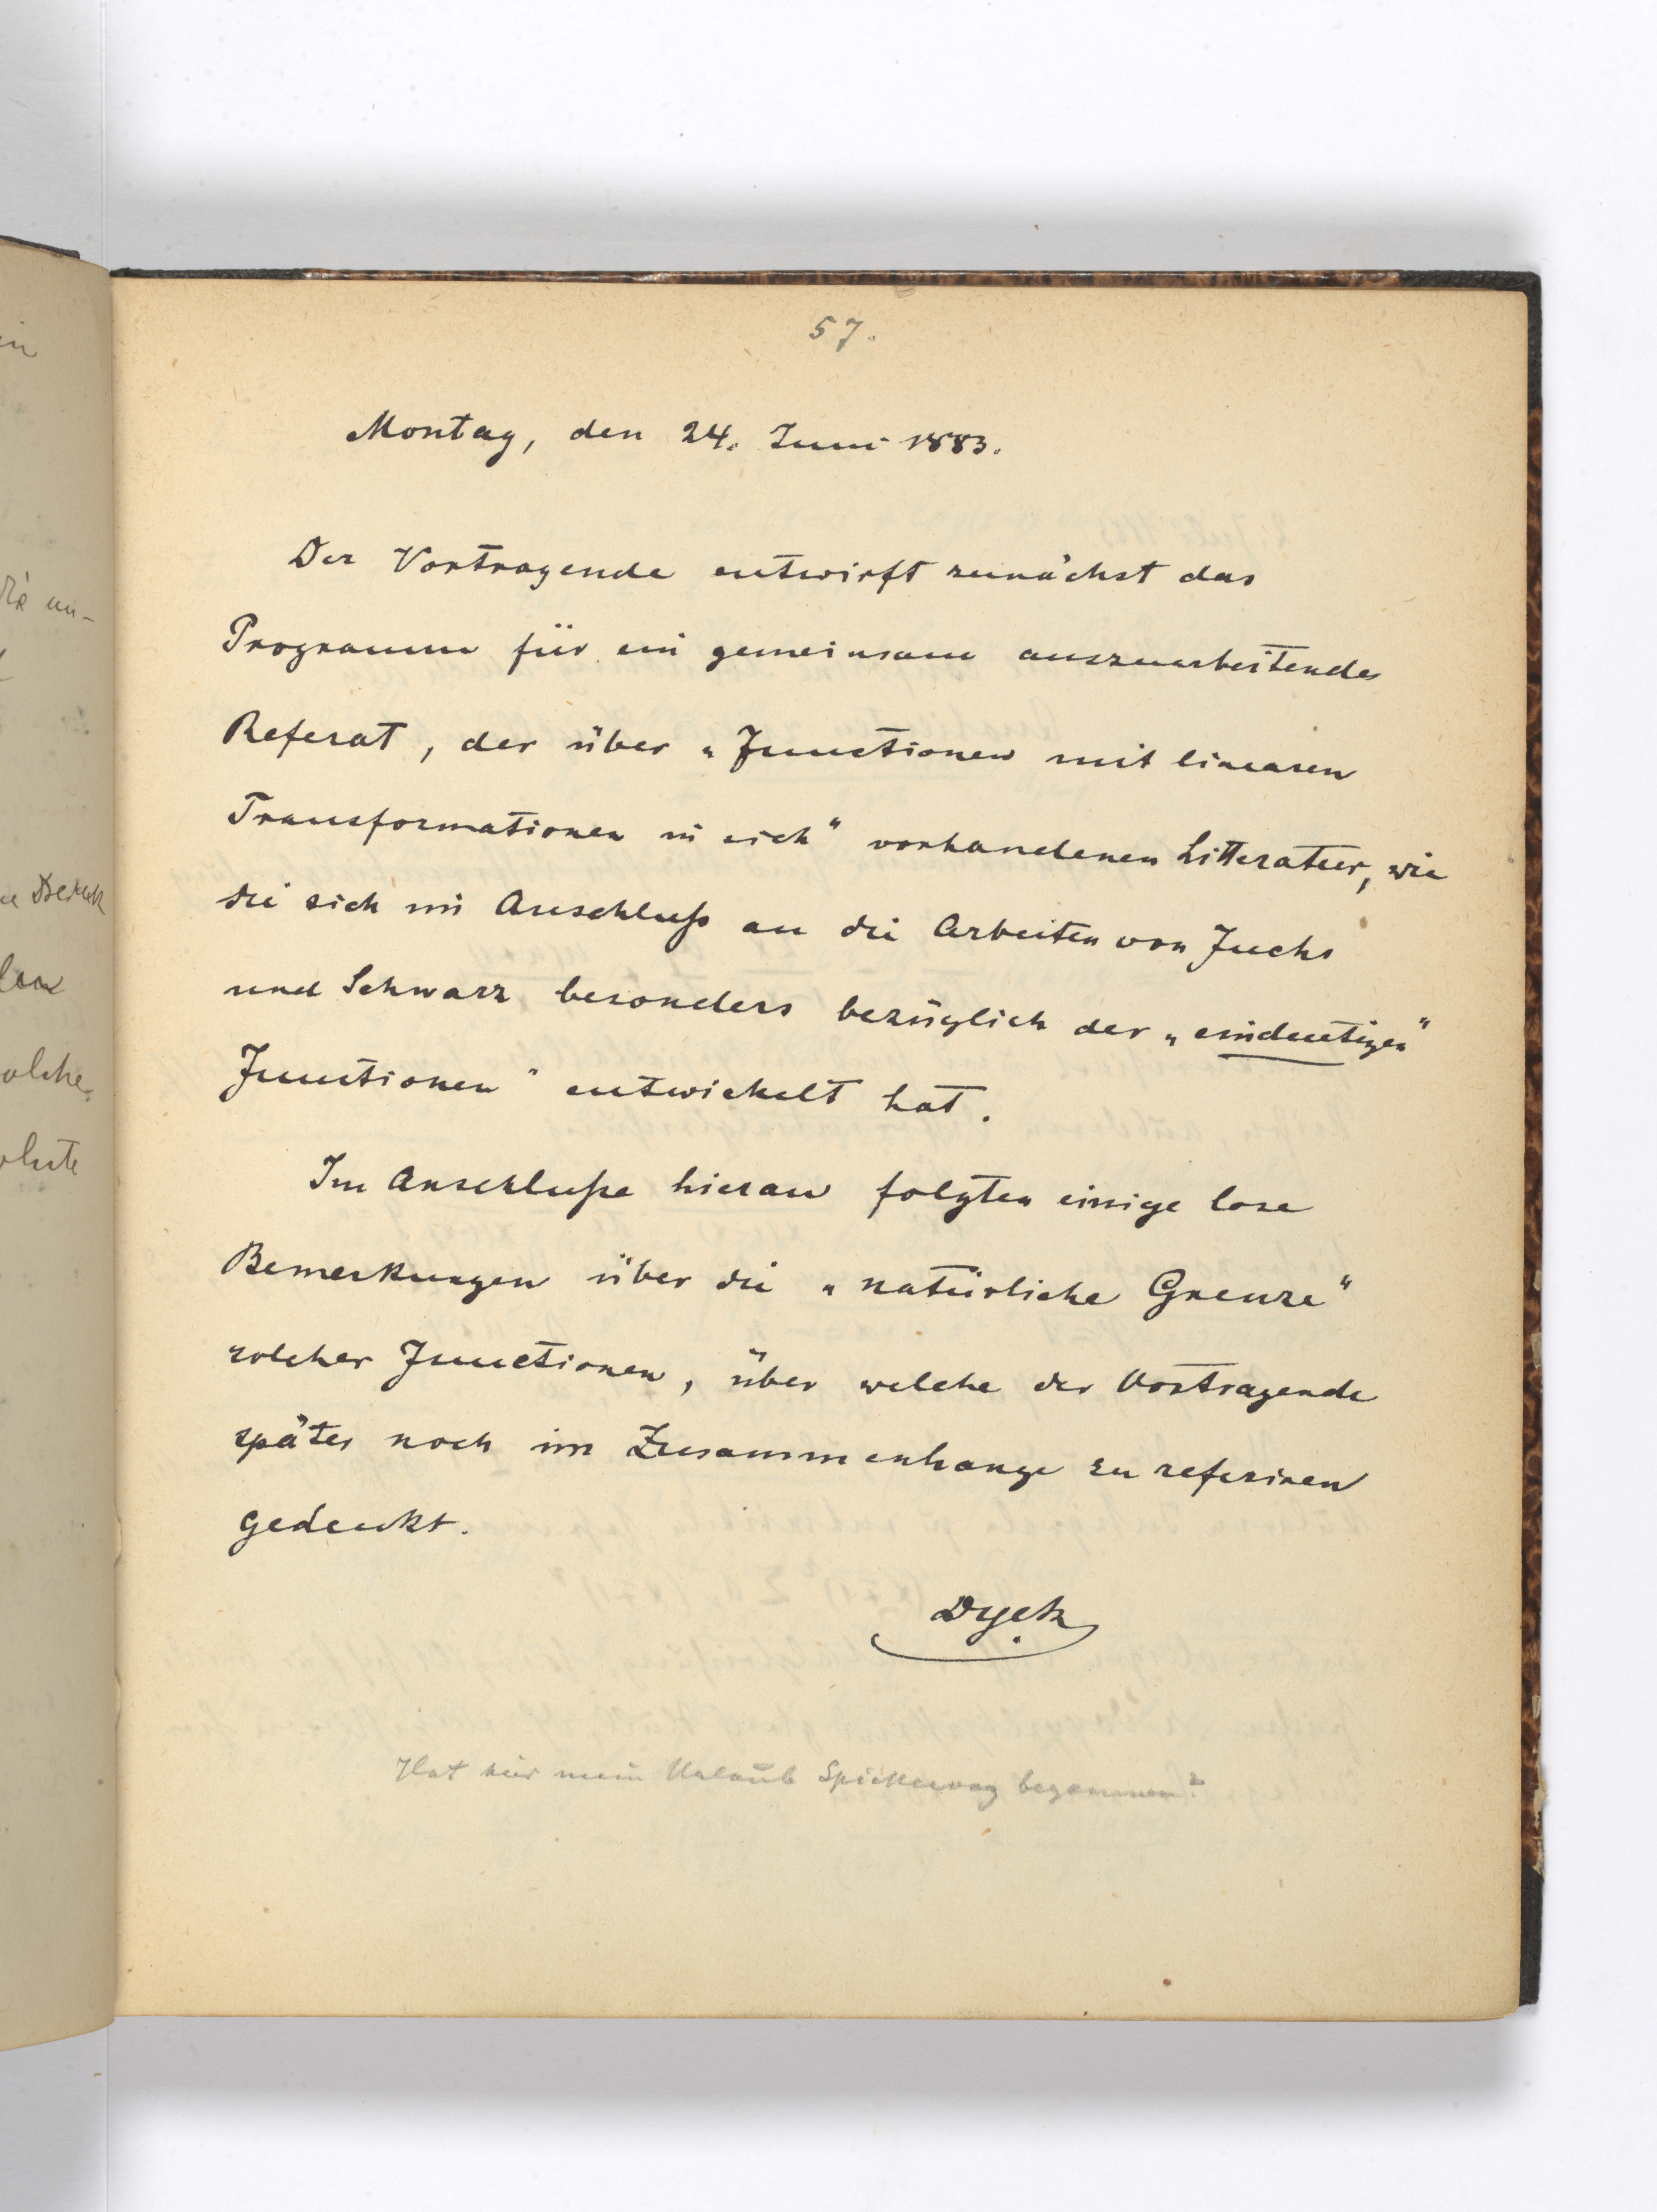 57.
Montag, den 24. Juni 1883.
Der Vortragende entwirft zunächst das
Programm für ein gemeinsam auszuarbeitendes
Referat, der über „Functionen mit linearen
Transformationen in sich“ vorhandenen Litteratur, wie
die sich im Anschluß an die Arbeiten von Fuchs
und Schwarz besonders bezüglich der „eindeutigen“
Functionen“ entwickelt hat.
Im Anschluße hieran folgten einige lose
Bemerkungen über die „natürliche Grenze“
solcher Functionen, über welche der Vortragende
später noch im Zusammenhange zu referiren
gedenkt.
Dyck
Hat hier mein Urlaub Spiekeroog begonnen?
in
die un-
olche